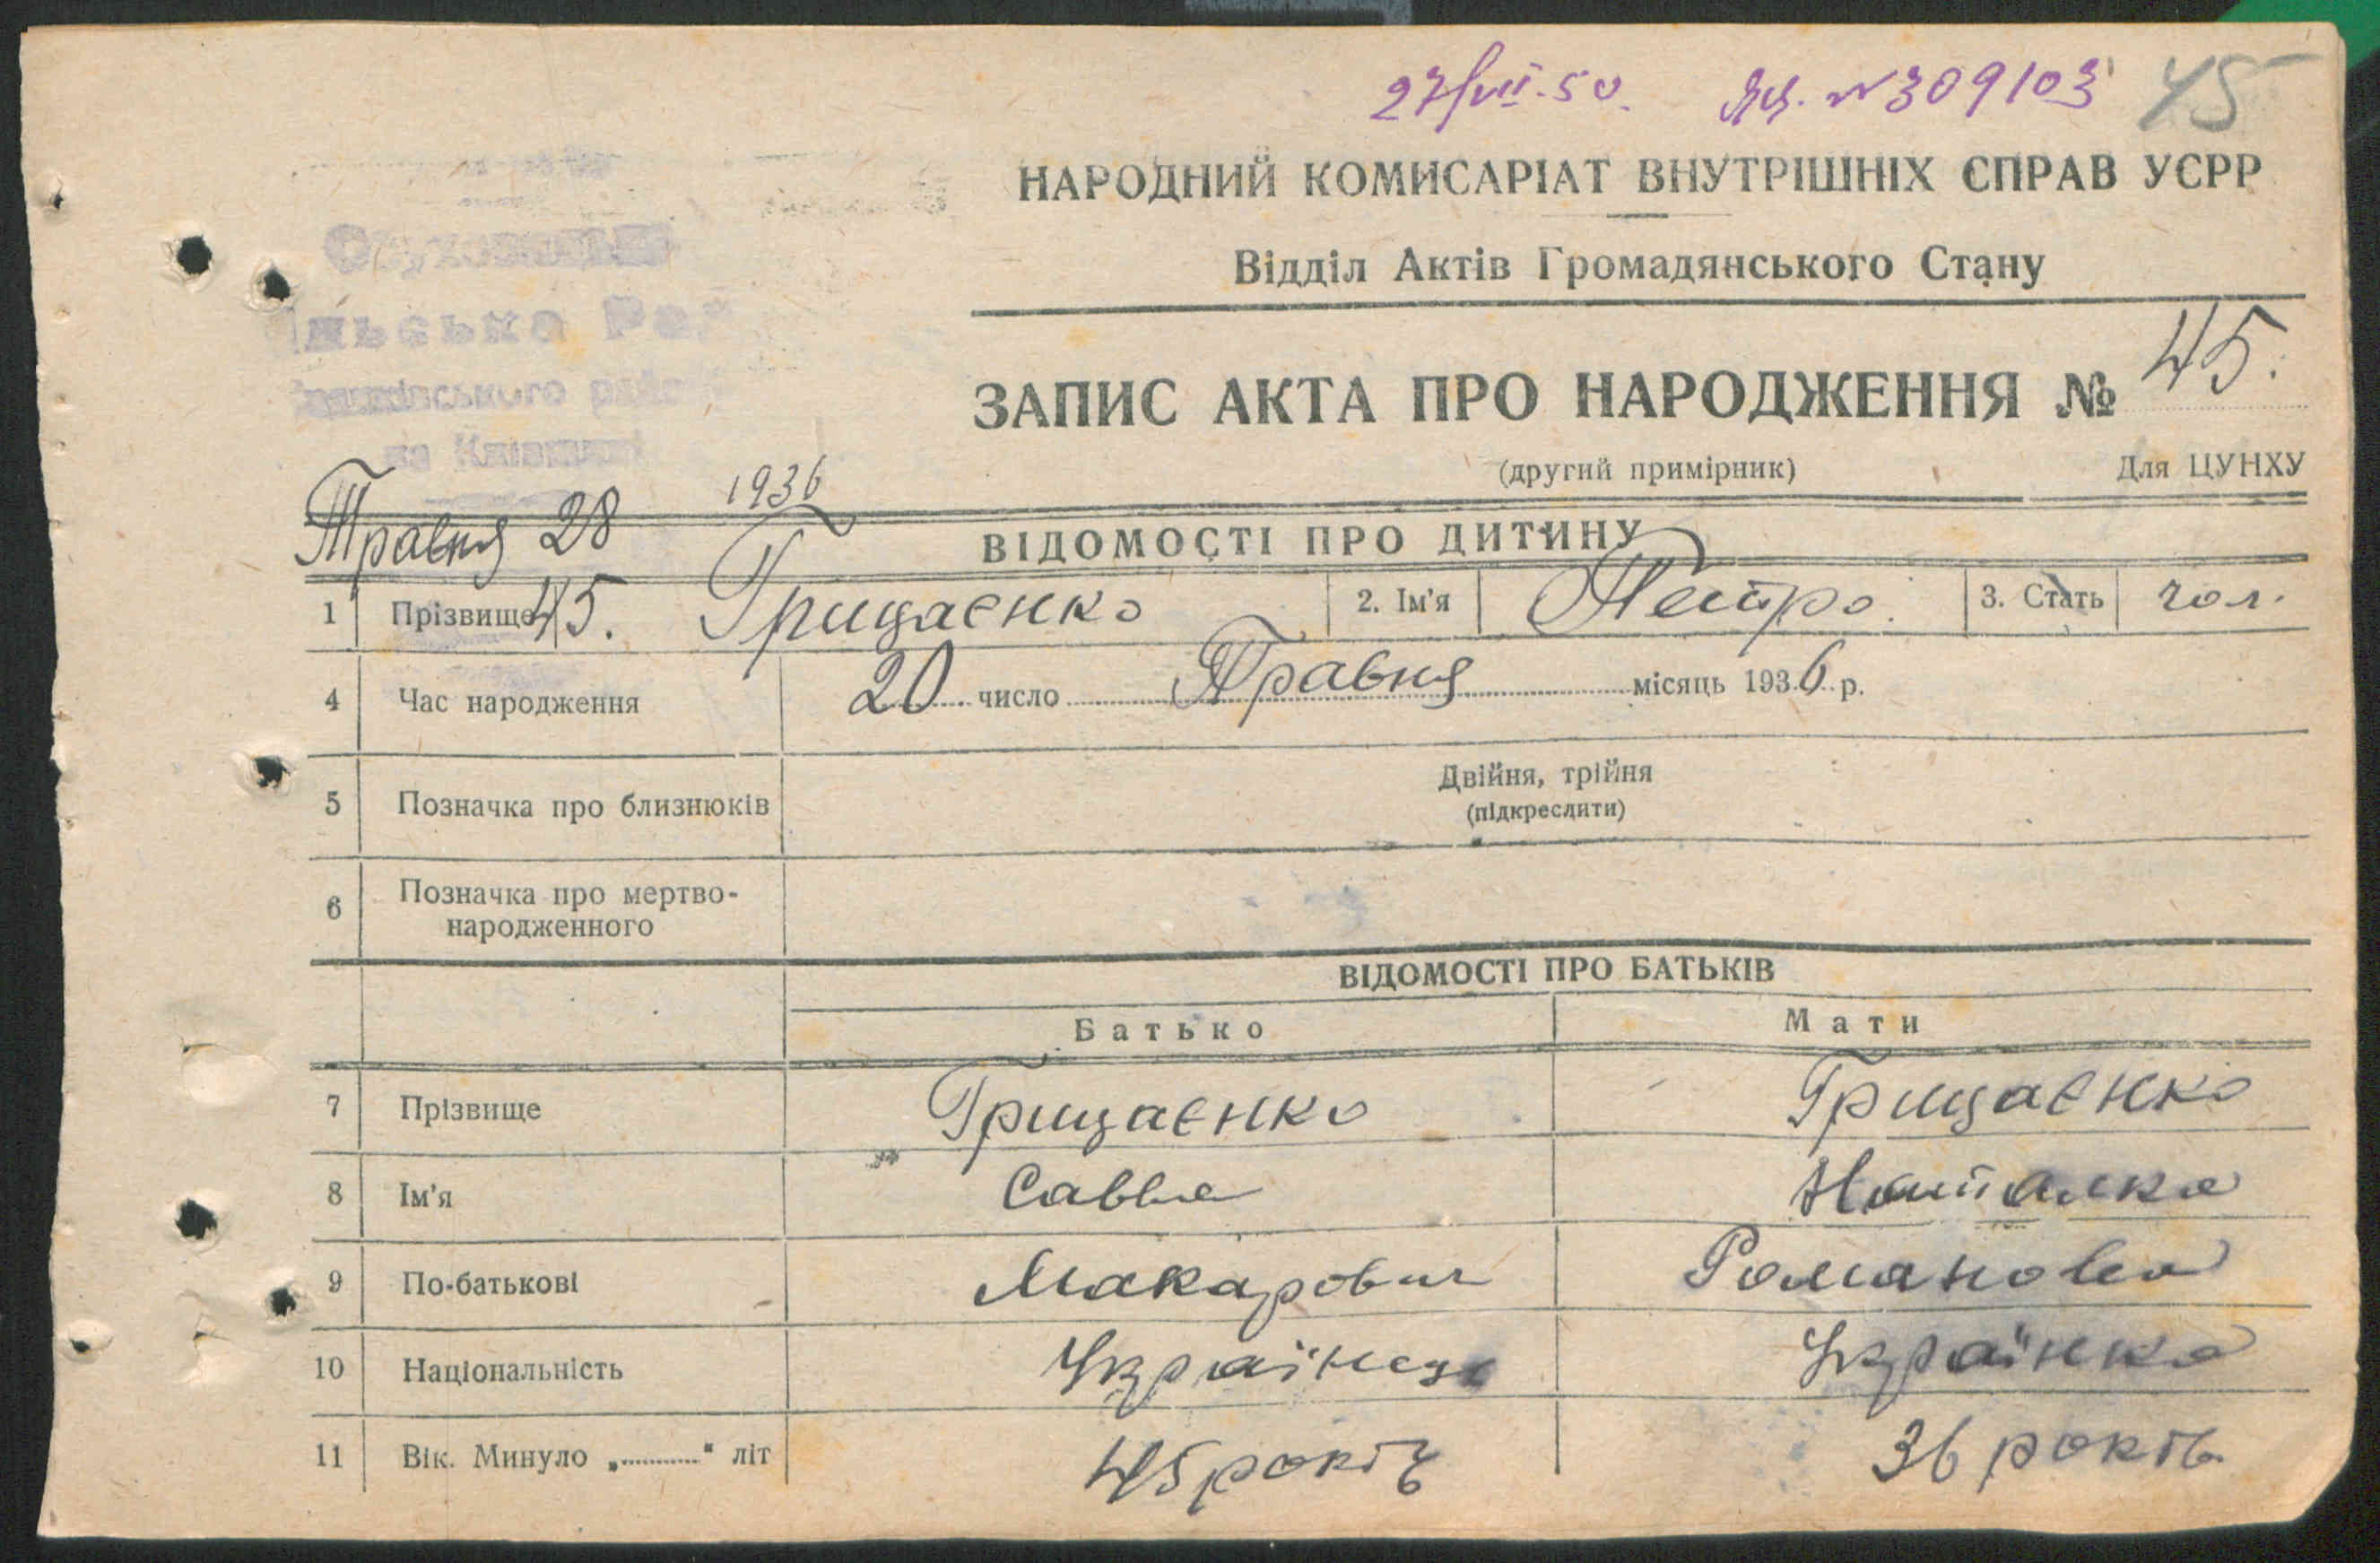 27/VII.50. ЯЦ. N 309103 45
НАРОДНИЙ КОМИСАРІАТ ВНУТРІШНІХ СПРАВ УСРР
Відділ Актів Громадянського Стану
ЗАПИС АКТА ПРО НАРОДЖЕННЯ № 45.
(другий примірник) Для ЦУНХУ
Травня 28 1936
45.
ВІДОМОСТІ ПРО ДИТИНУ
1 Прізвище Грищаєнко 2. Ім'я Петро. 3. Стать чол.
4 Час народження 20 число Травня місяць 1936 р.
5 Позначка про близнюків Двійня, трійня
(підкреслити)
6 Позначка про мертво-
народженного
ВІДОМОСТІ ПРО БАТЬКІВ
Батько Мати
7 Прізвище Грищаєнко Грищаєнко
8 Ім'я Савва Наталка
9 По-батькові Макарович Романовна
10 Національність Українець Українка
11 Вік. Минуло „..........“ літ 45 років 36 років